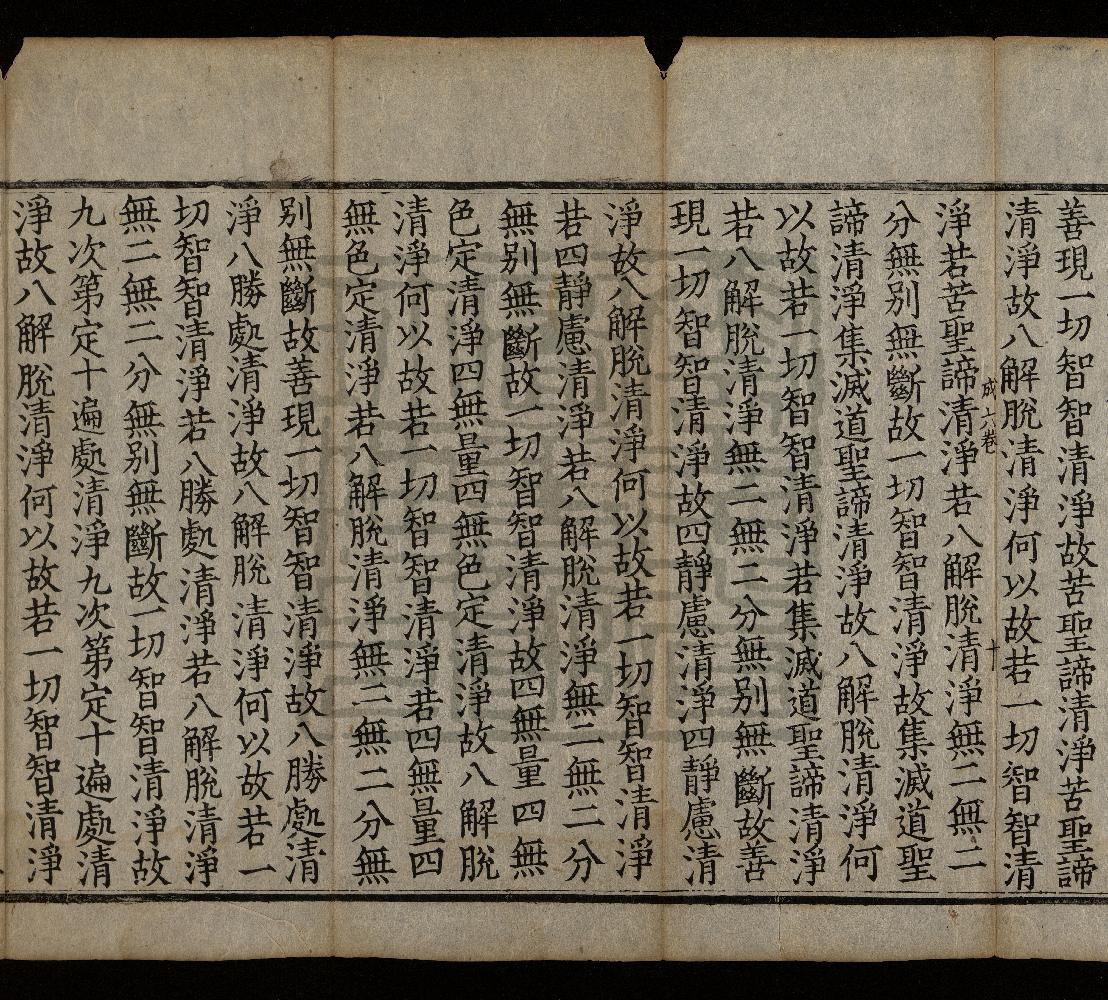 善現一切智智清淨故苦聖諦清淨苦聖諦
清淨故八解脫清淨何以故若一切智智清
成六卷
十
淨若苦聖諦清淨若八解脫清淨無二無二
分無別無斷故一切智智清淨故集滅道聖
諦清淨集滅道聖諦清淨故八解脫清淨何
以故若一切智智清淨若集滅道聖諦清淨
若八解脫清淨無二無二分無別無斷故善
現一切智智清淨故四靜慮清淨四靜慮清
淨故八解脫清淨何以故若一切智智清淨
若四靜慮清淨若八解脫清淨無二無二分
無別無斷故一切智智清淨故四無量四無
色定清淨四無量四無色定清淨故八解脫
清淨何以故若一切智智清淨若四無量四
無色定清淨若八解脫清淨無二無二分無
別無斷故善現一切智智清淨故八勝處清
淨八勝處清淨故八解脫清淨何以故若一
切智智清淨若八勝處清淨若八解脫清淨
無二無二分無別無斷故一切智智清淨故
九次第定十遍處清淨九次第定十遍處清
淨故八解脫清淨何以故若一切智智清淨